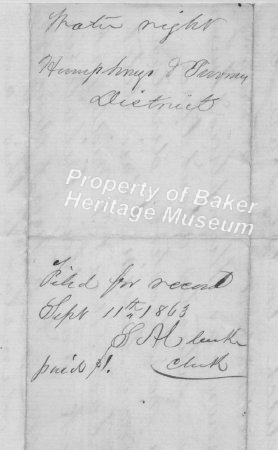 Water right
Humphreys &
District
Property of Baker
Heritage Museum
Filed for record
Sept 11th 1863
S A Clarke
paid $1. Clerk